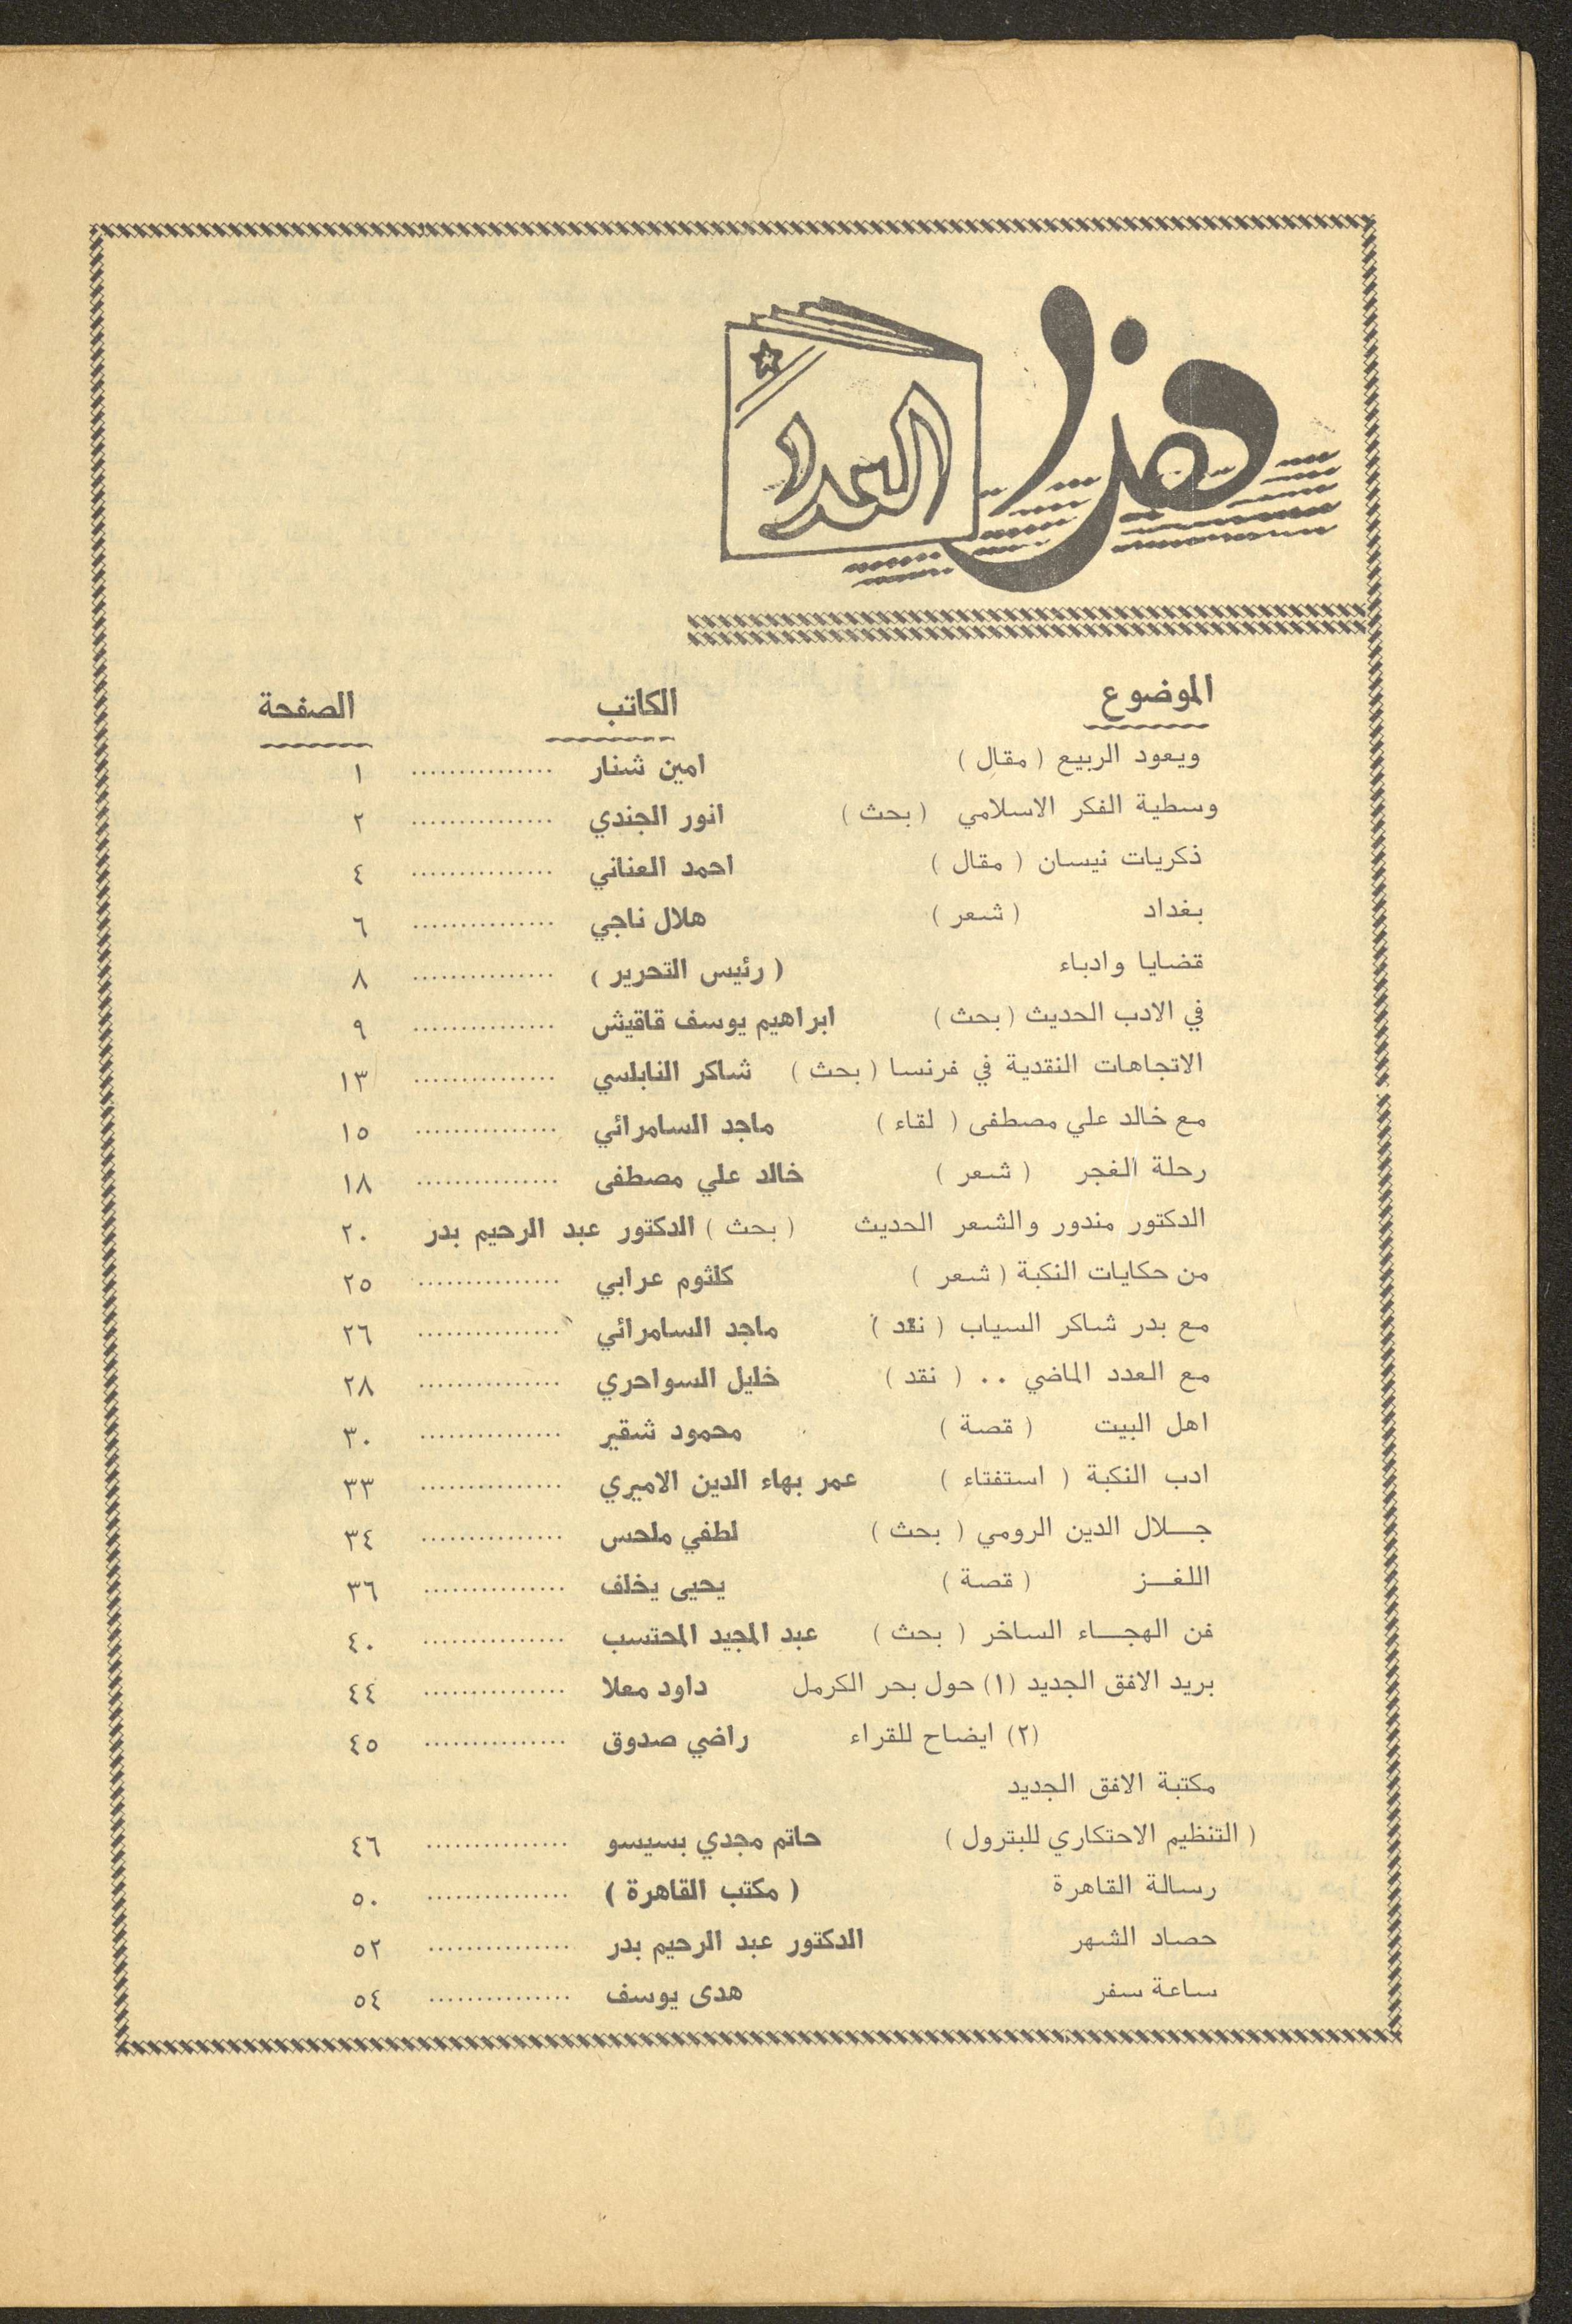 هذا العدد
الموضوع الكاتب الصفحة
ويعود الربيع ( مقال ) امين شنار ............... ١
وسطية الفكر الاسلامي ( بحث ) انور الجندي ............... ٢
ذكريات نيسان ( مقال ) احمد العناني ............... ٤
بغداد ( شعر ) هلال ناجي ............... ٦
قضايا وادباء ( رئيس التحرير ) ............... ٨
في الادب الحديث ( بحث ) ابراهيم يوسف قاقيش ............... ٩
الاتجاهات النقدية في فرنسا ( بحث ) شاكر النابلسي ............... ١٣
مع خالد علي مصطفى ( لقاء ) ماجد السامرائي ............... ١٥
رحلة الفجر ( شعر ) خالد علي مصطفى ............... ١٨
الدكتور مندور والشعر الحديث ( بحث ) الدكتور عبد الرحيم بدر ٢٠
من حكايات النكبة ( شعر ) كلثوم عرابي ............... ٢٥
مع بدر شاكر السياب ( نقد ) ماجد السامرائي ............... ٢٦
مع العدد الماضي .. ( نقد ) خليل السواحري ............... ٢٨
اهل البيت ( قصة ) محمود شقير ............... ٣٠
ادب النكبة ( استفتاء ) عمر بهاء الدين الاميري ............... ٣٣
جــلال الدين الرومي ( بحث ) لطفي ملحس ............... ٣٤
اللغــز ( قصة ) يحيى يخلف ............... ٣٦
فن الهجــاء الساخر ( بحث ) عبد المجيد المحتسب ............... ٤٠
بريد الافق الجديد (١) حول بحر الكرمل داود معلا ............... ٤٤
(٢) ايضاح للقراء راضي صدوق ............... ٤٥
مكتبة الافق الجديد
( التنظيم الاحتكاري للبترول ) حاتم مجدي بسيسو ............... ٤٦
رسالة القاهرة ( مكتب القاهرة ) ............... ٥٠
حصاد الشهر الدكتور عبد الرحيم بدر ............... ٥٢
ساعة سفر هدى يوسف ............... ٥٤